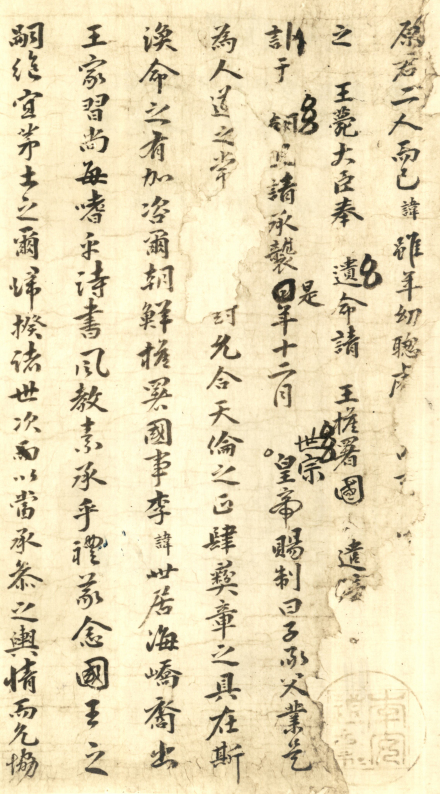 原君二人而已諱雖年幼聰
之 王薨大臣奉 遺命請 王權署國 遣
訃于 請承襲是年十二月 世宗皇帝賜制曰子承父業
為人道之常 封允合天倫之正肆彝章之具在斯
渙命之有加咨爾朝鮮權署國事李諱世居海嶠裔出
王家習尚每嗜乎詩書風教素承乎禮義念國王之
嗣絶宜茅土之爾歸揆諸世次而以當承叅之輿情而允協